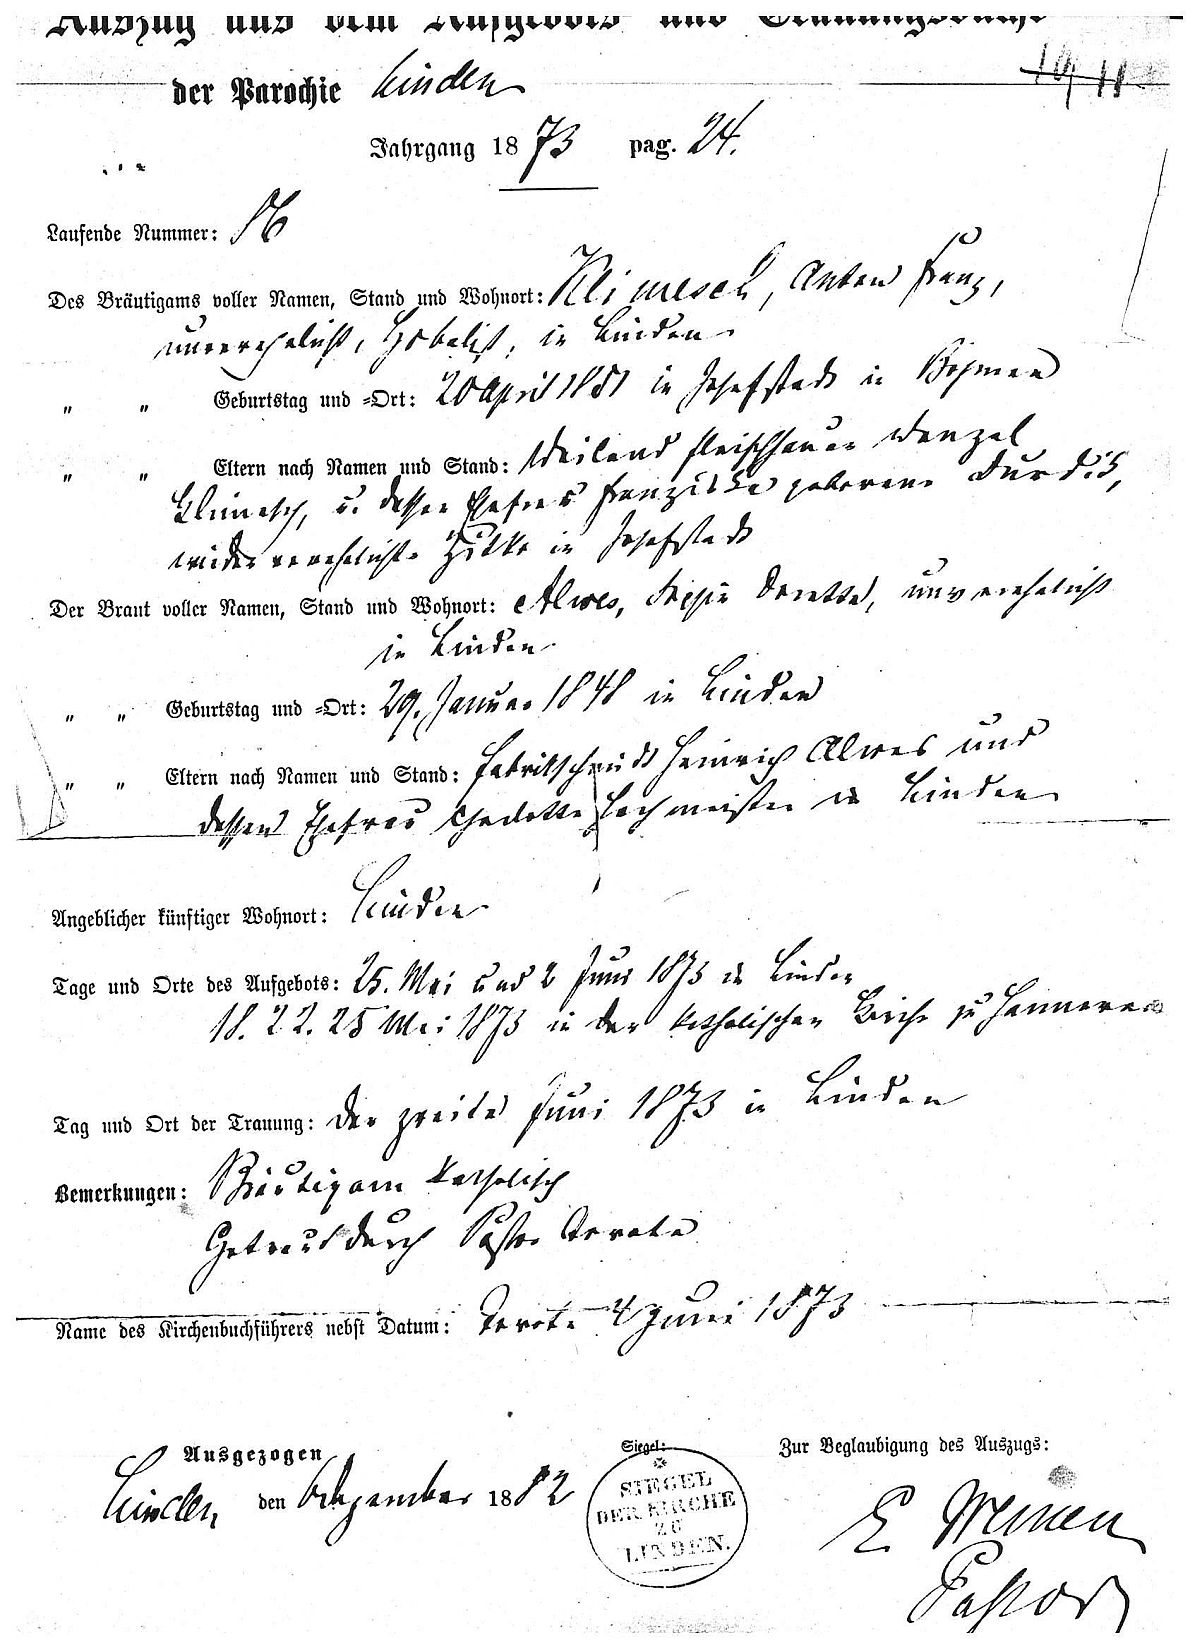 Auszug aus dem Aufgebots- und Trauungsbuche
der Parochie Linden
Jahrgang 1873 pag. 24.
Laufende Nummer: 56
Des Bräutigams voller Namen, Stand und Wohnort: Klimesch, Anton Franz,
unverehelicht, Hobelist, in Linden
" " Geburtstag und =Ort: 20 April 1851 in Josefstadt in Böhmen
" " Eltern nach Namen und Stand: Weiland Fleischhauer Wenzel
Klimesch, u. dessen Ehefrau Franziska geborene
wieder verehelichte in Josefstadt
Der Braut voller Namen, Stand und Wohnort: Alwes, Sophie Dorette, unverehelicht
in Linden
" " Geburtstag und =Ort: 29. Januar 1848 in Linden
" " Eltern nach Namen und Stand: Fabrikschmidt Heinrich Alwes und
dessen Ehefrau Charlotte Lochmeister in Linden
Angeblicher künftiger Wohnort: Linden
Tage und Orte des Aufgebots: 25. Mai und 2 Juni 1873 in Linden
18. 22. 25 Mai 1873 in der katholischen Kirche zu Hannover
Tag und Ort der Trauung: den zweiten Juni 1873 in Linden
Bemerkungen: Bräutigam katholisch
Getraut durch Pastor
Name des Kirchenbuchführers nebst Datum: 4 Juni 1873
Ausgezogen
Linden, den 6 Dezember 1882
Siegel:
SIEGEL
DER KIRCHE
ZU
LINDEN.
Zur Beglaubigung des Auszugs:
E.
Pastor